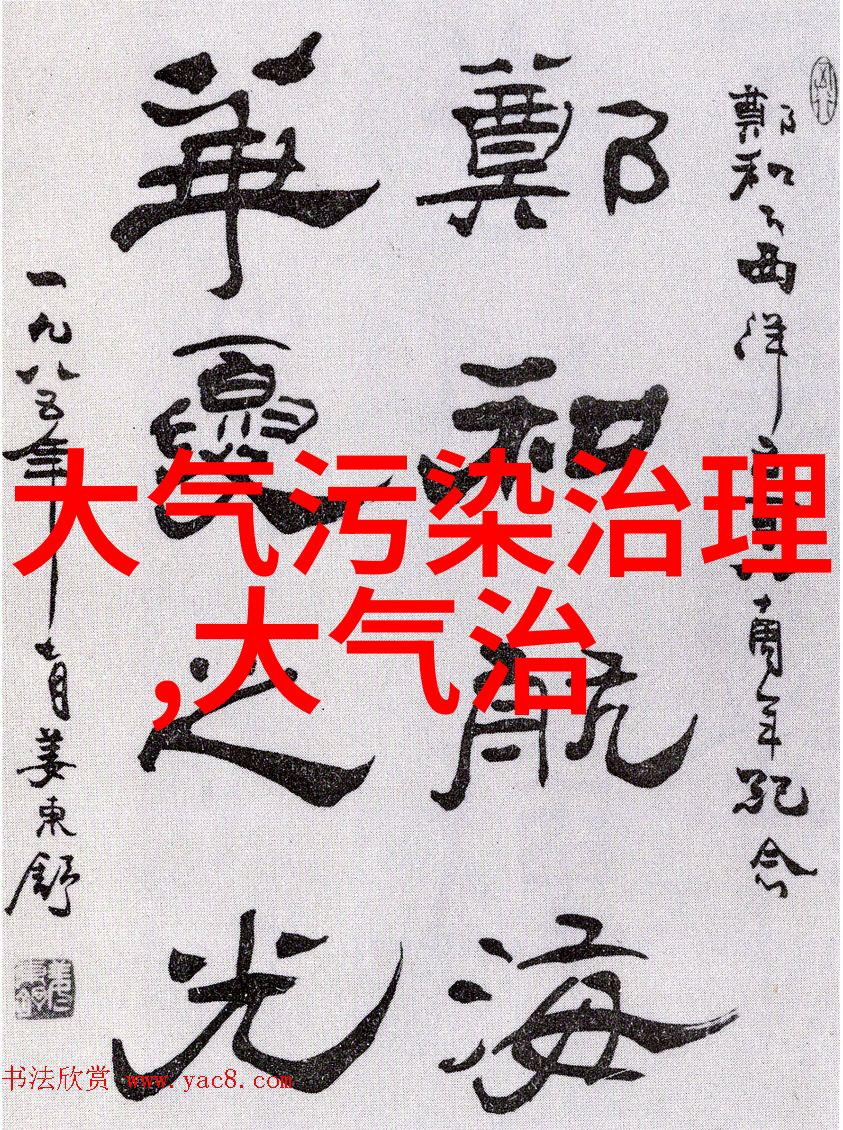 鄭和下西洋
十周年紀念
鄭和航海
華夏之光
一九八五年
七月姜東舒
大气污染治理
,大气治
书法欣赏 www.yac8.com